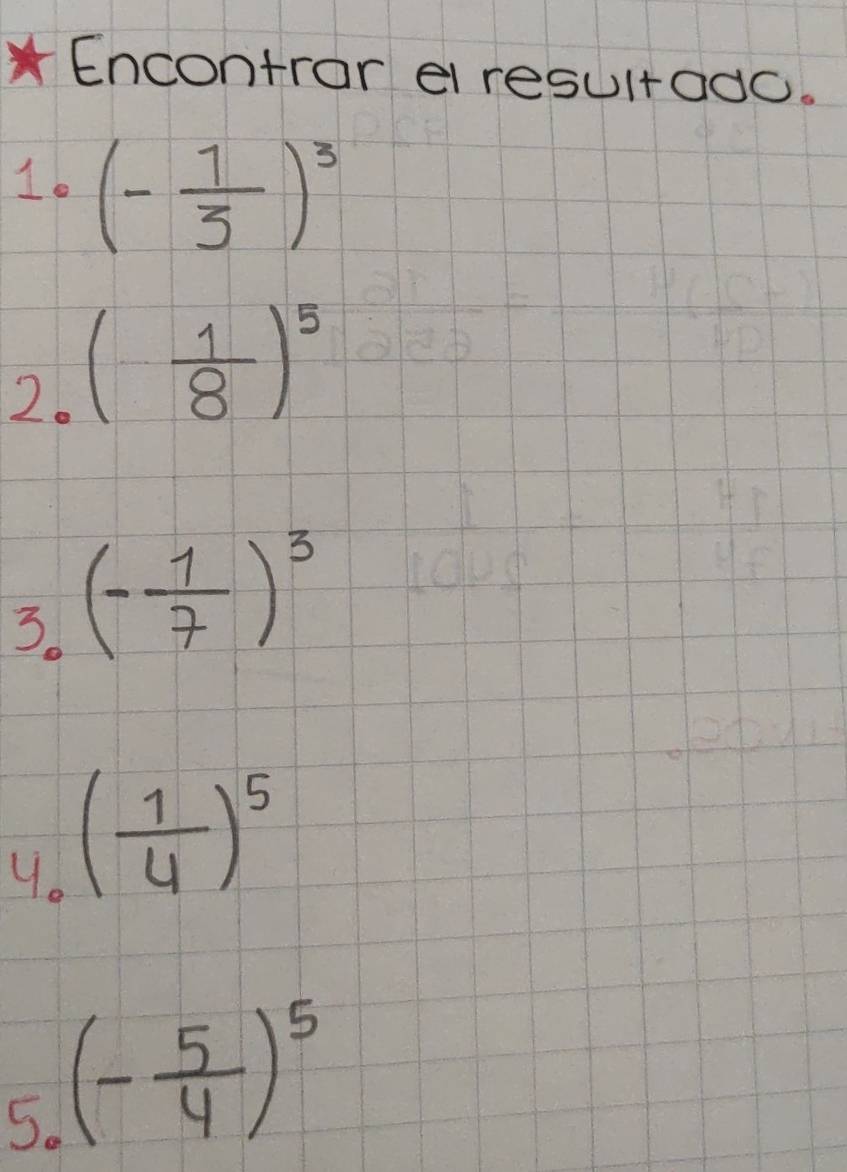 ★ Encontrar el resultado.
1. (- 1/3)³
2. (- 1/8)⁵
3. (- 1/7)³
4. (1/4)⁵
5. (- 5/4)⁵